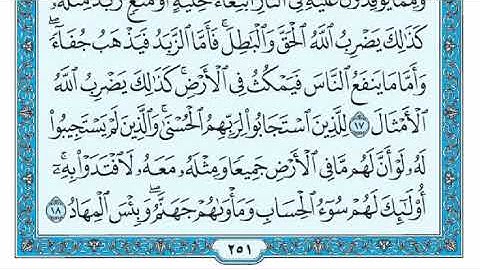 وَمِمَّا يُوقِدُونَ عَلَيْهِ فِي ٱلنَّارِ ٱبْتِغَآءَ حِلْيَةٍ أَوْ مَتَٰعٍ زَبَدٌ مِّثْلُهُۥ
كَذَٰلِكَ يَضْرِبُ ٱللَّهُ ٱلْحَقَّ وَٱلْبَٰطِلَ ۚ فَأَمَّا ٱلزَّبَدُ فَيَذْهَبُ جُفَآءً ۖ
وَأَمَّا مَا يَنفَعُ ٱلنَّاسَ فَيَمْكُثُ فِي ٱلْأَرْضِ ۚ كَذَٰلِكَ يَضْرِبُ ٱللَّهُ
ٱلْأَمْثَالَ ١٧ لِلَّذِينَ ٱسْتَجَابُوا۟ لِرَبِّهِمُ ٱلْحُسْنَىٰ ۚ وَٱلَّذِينَ لَمْ يَسْتَجِيبُوا۟
لَهُۥ لَوْ أَنَّ لَهُم مَّا فِي ٱلْأَرْضِ جَمِيعًا وَمِثْلَهُۥ مَعَهُۥ لَٱفْتَدَوْا۟ بِهِۦٓ ۚ
أُو۟لَٰٓئِكَ لَهُمْ سُوٓءُ ٱلْحِسَابِ وَمَأْوَىٰهُمْ جَهَنَّمُ ۖ وَبِئْسَ ٱلْمِهَادُ ١٨
٢٥١